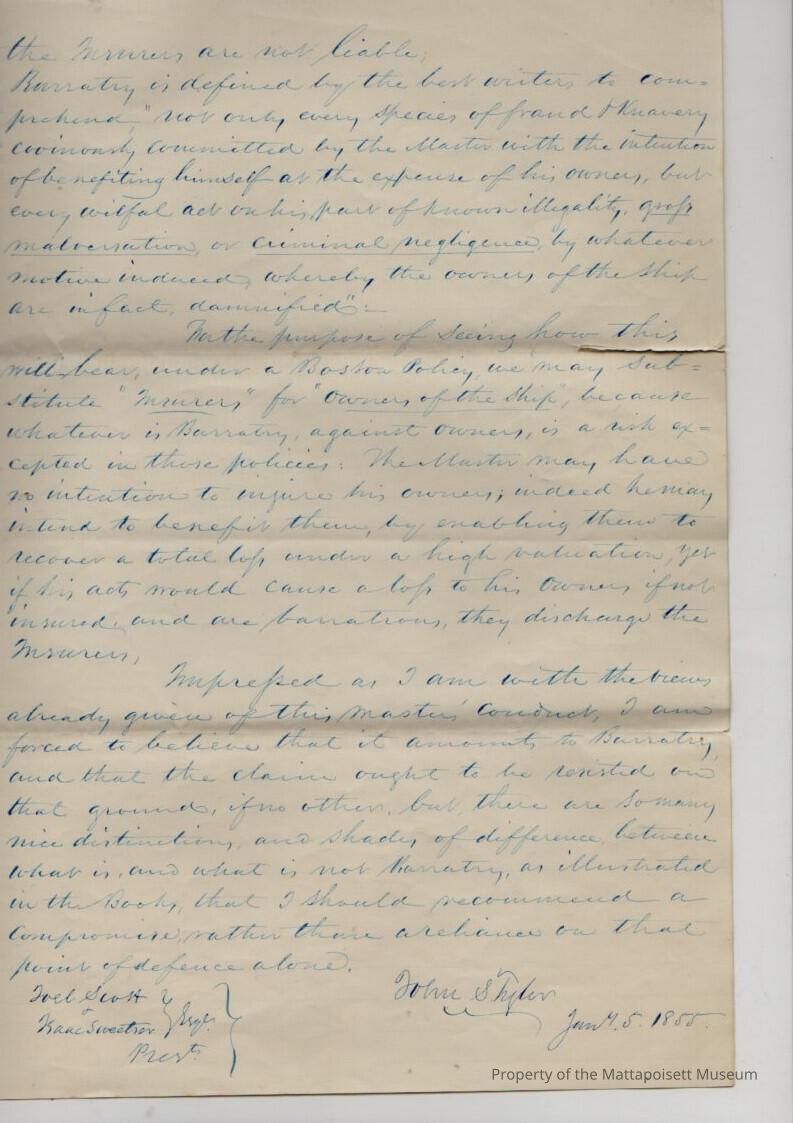 the Insurers are not liable;
Barratry is defined by the best writers to com=
prehend, "not only every species of fraud & Knavery
covinously committed by the Master with the intention
of benefiting himself at the expense of his owners, but
every wilful act on his part of known illegality, gross
malversation, or criminal negligence, by whatever
motive induced, whereby the owners of the Ship
are in fact, damnified":—
For the purpose of seeing how this
will bear, under a Boston Policy, we may sub=
stitute "Insurers," for "owners of the Ship", because
whatever is Barratry, against owners, is a risk ex=
cepted in those policies: The Master may have
no intention to injure his owners; indeed he may
intend to benefit them, by enabling them to
recover a total loss under a high valuation, yet
if his acts would cause a loss to his Owners if not
insured, and are barratrous, they discharge the
Insurers,
Impressed as I am with the views
already given of this Master's Conduct, I am
forced to believe that it amounts to Barratry,
and that the claim ought to be resisted on
that ground, if no other, but, there are so many
nice distinctions, and shades of difference, between
what is, and what is not Barratry, as illustrated
in the Books, that I should recommend a
Compromise, rather than a reliance on that
point of defence alone.
John S Tyler
Joel Scott
&
Isaac Sweetser
Esqrs.
Jany. 5. 1855.
Prests
Property of the Mattapoisett Museum